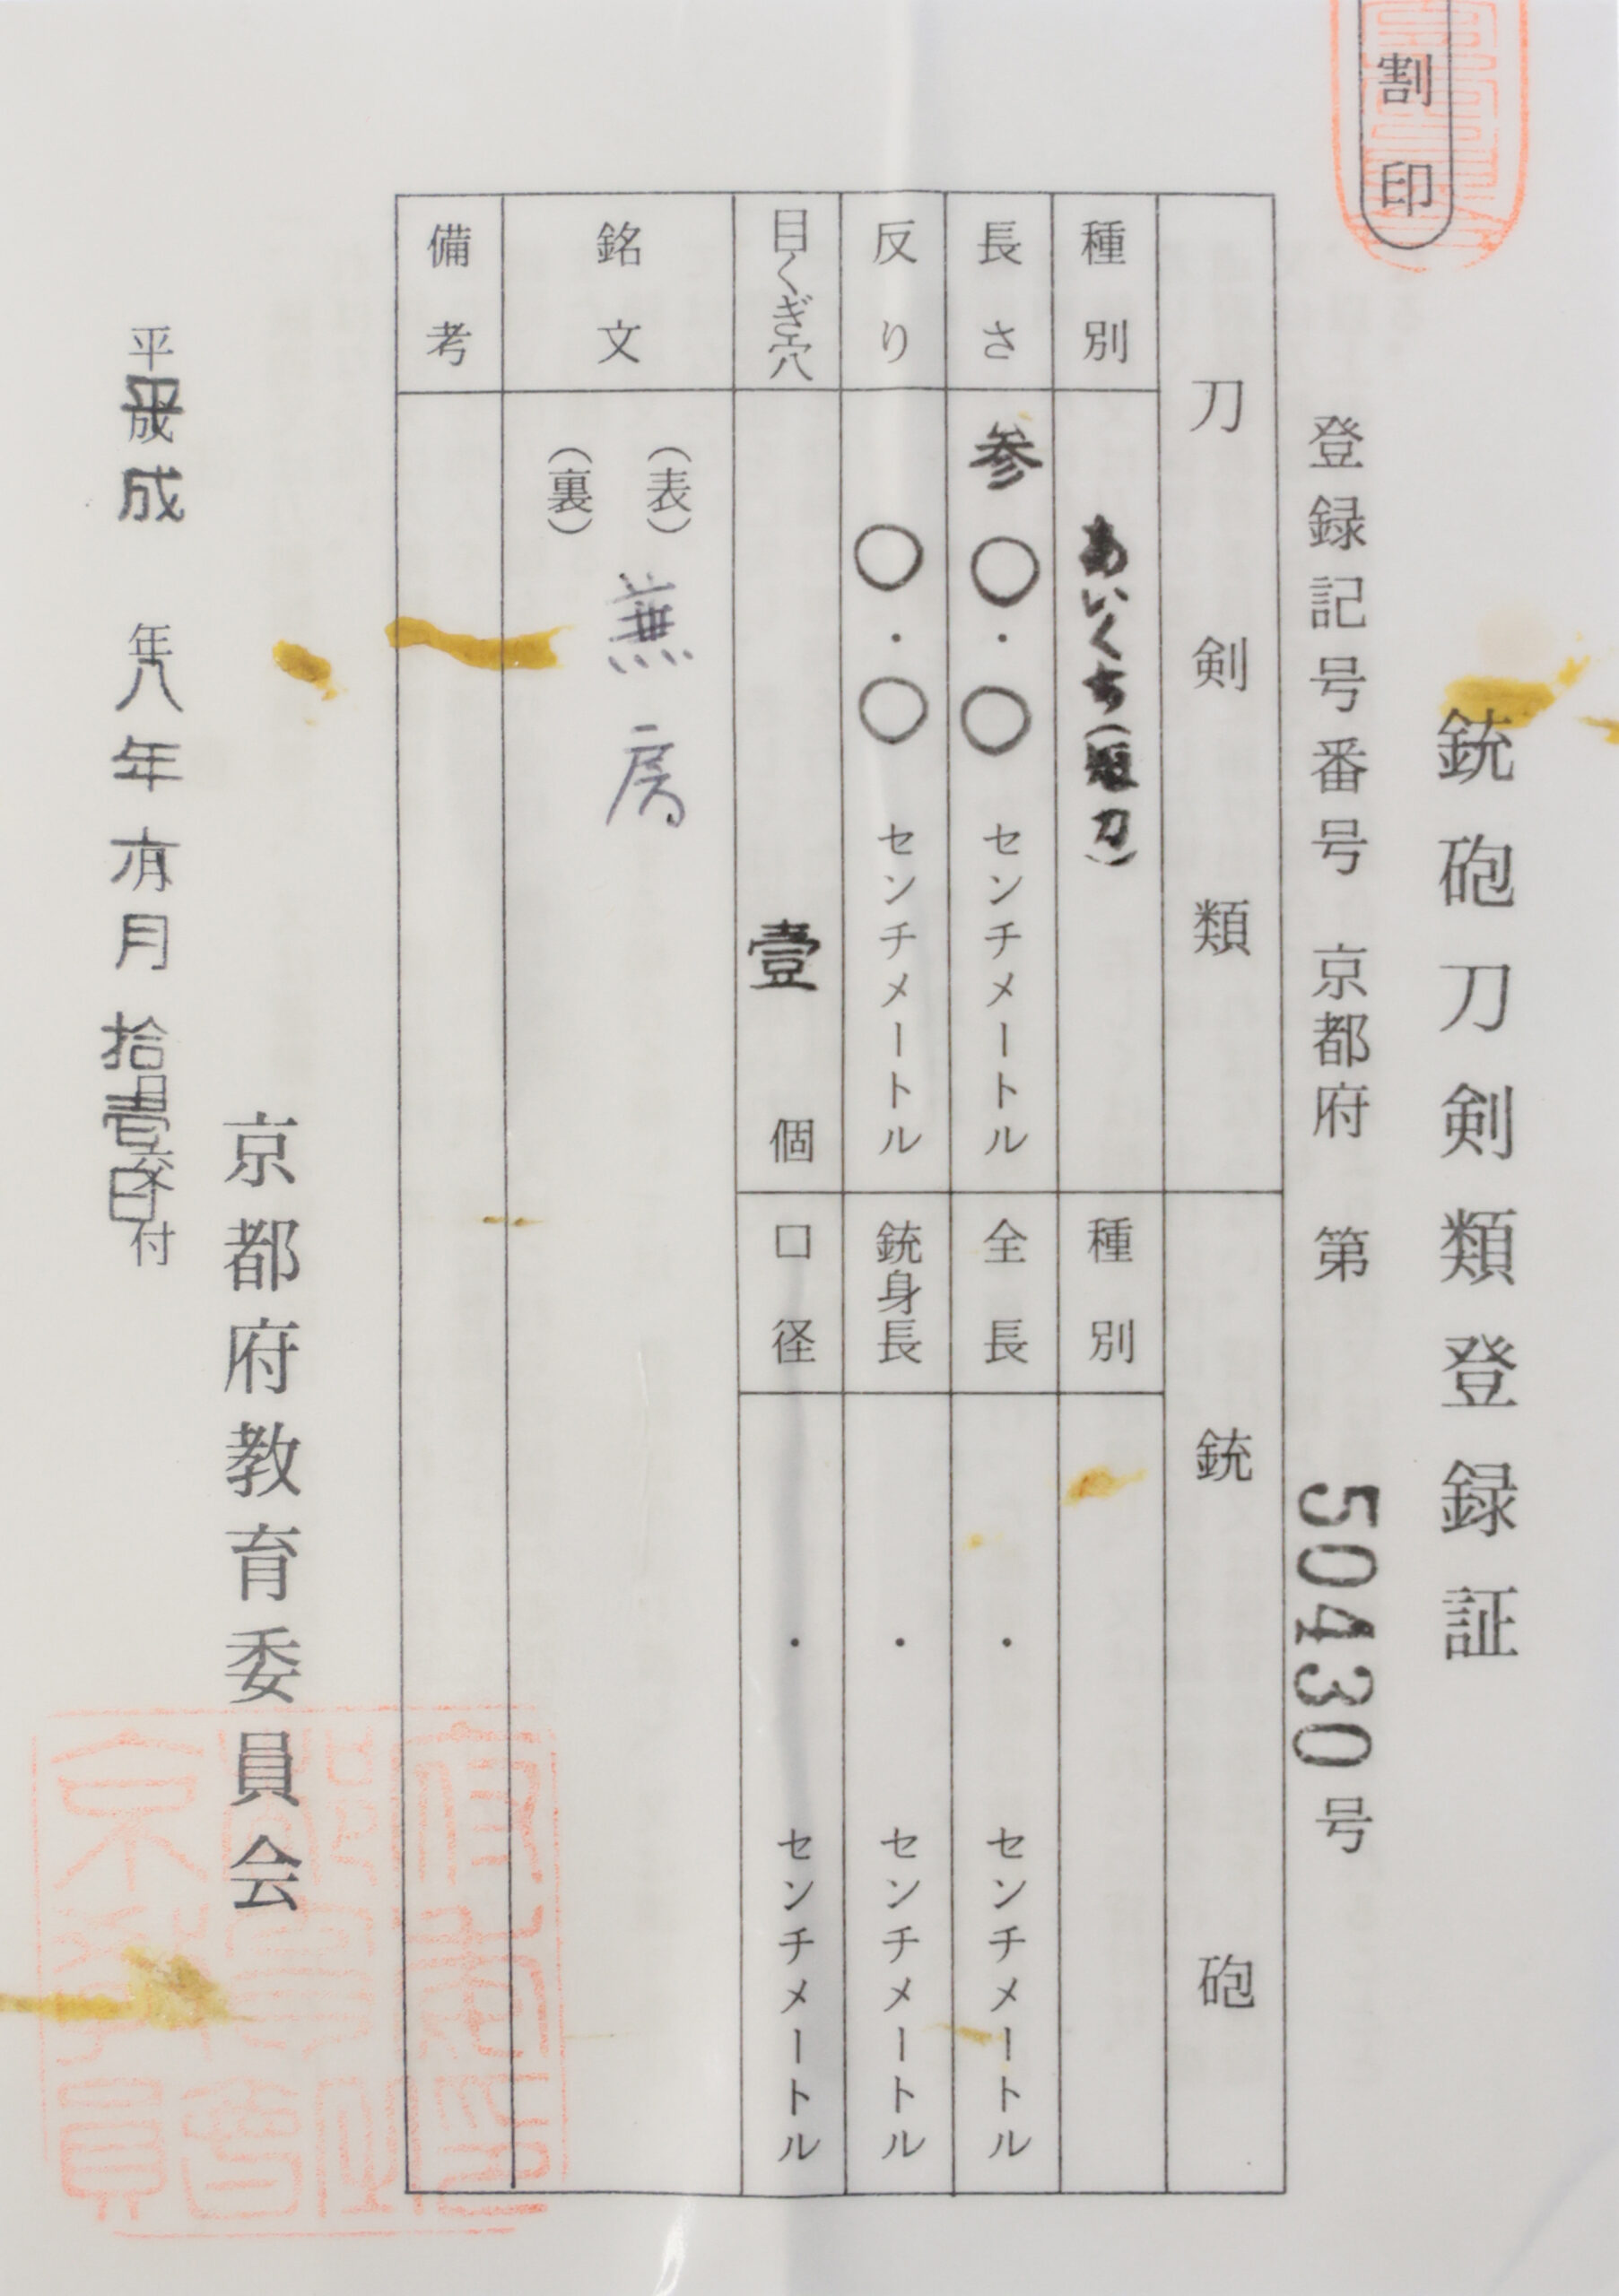 割印
銃砲刀剣類登録証
登録記号番号 京都府 第 50430 号
刀剣類
種別 あいくち(短刀)
長さ 参〇.〇 センチメートル
反り 〇.〇 センチメートル
目くぎ穴 壹 個
銃砲
種別
全長 . センチメートル
銃身長 . センチメートル
口径 . センチメートル
銘文 (表) 兼房
(裏)
備考
京都府教育委員会
平成 年 月 日交付
平成八年六月拾壹日